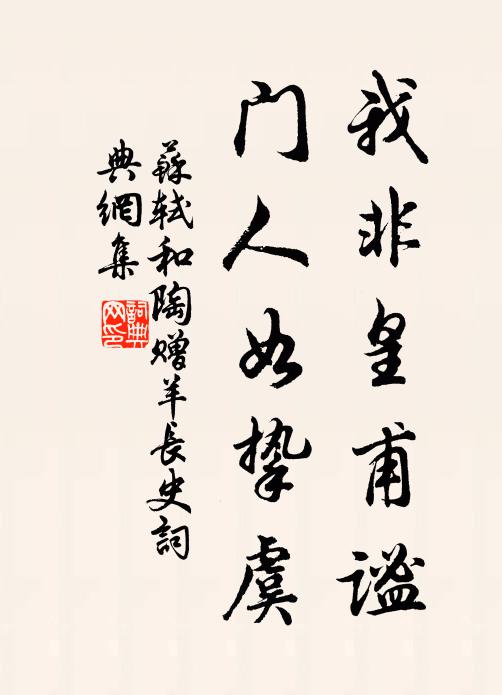 我非皇甫謐
門人如摯虞
蘇軾和陶贈羊長史詞
典網集
詞典
网印